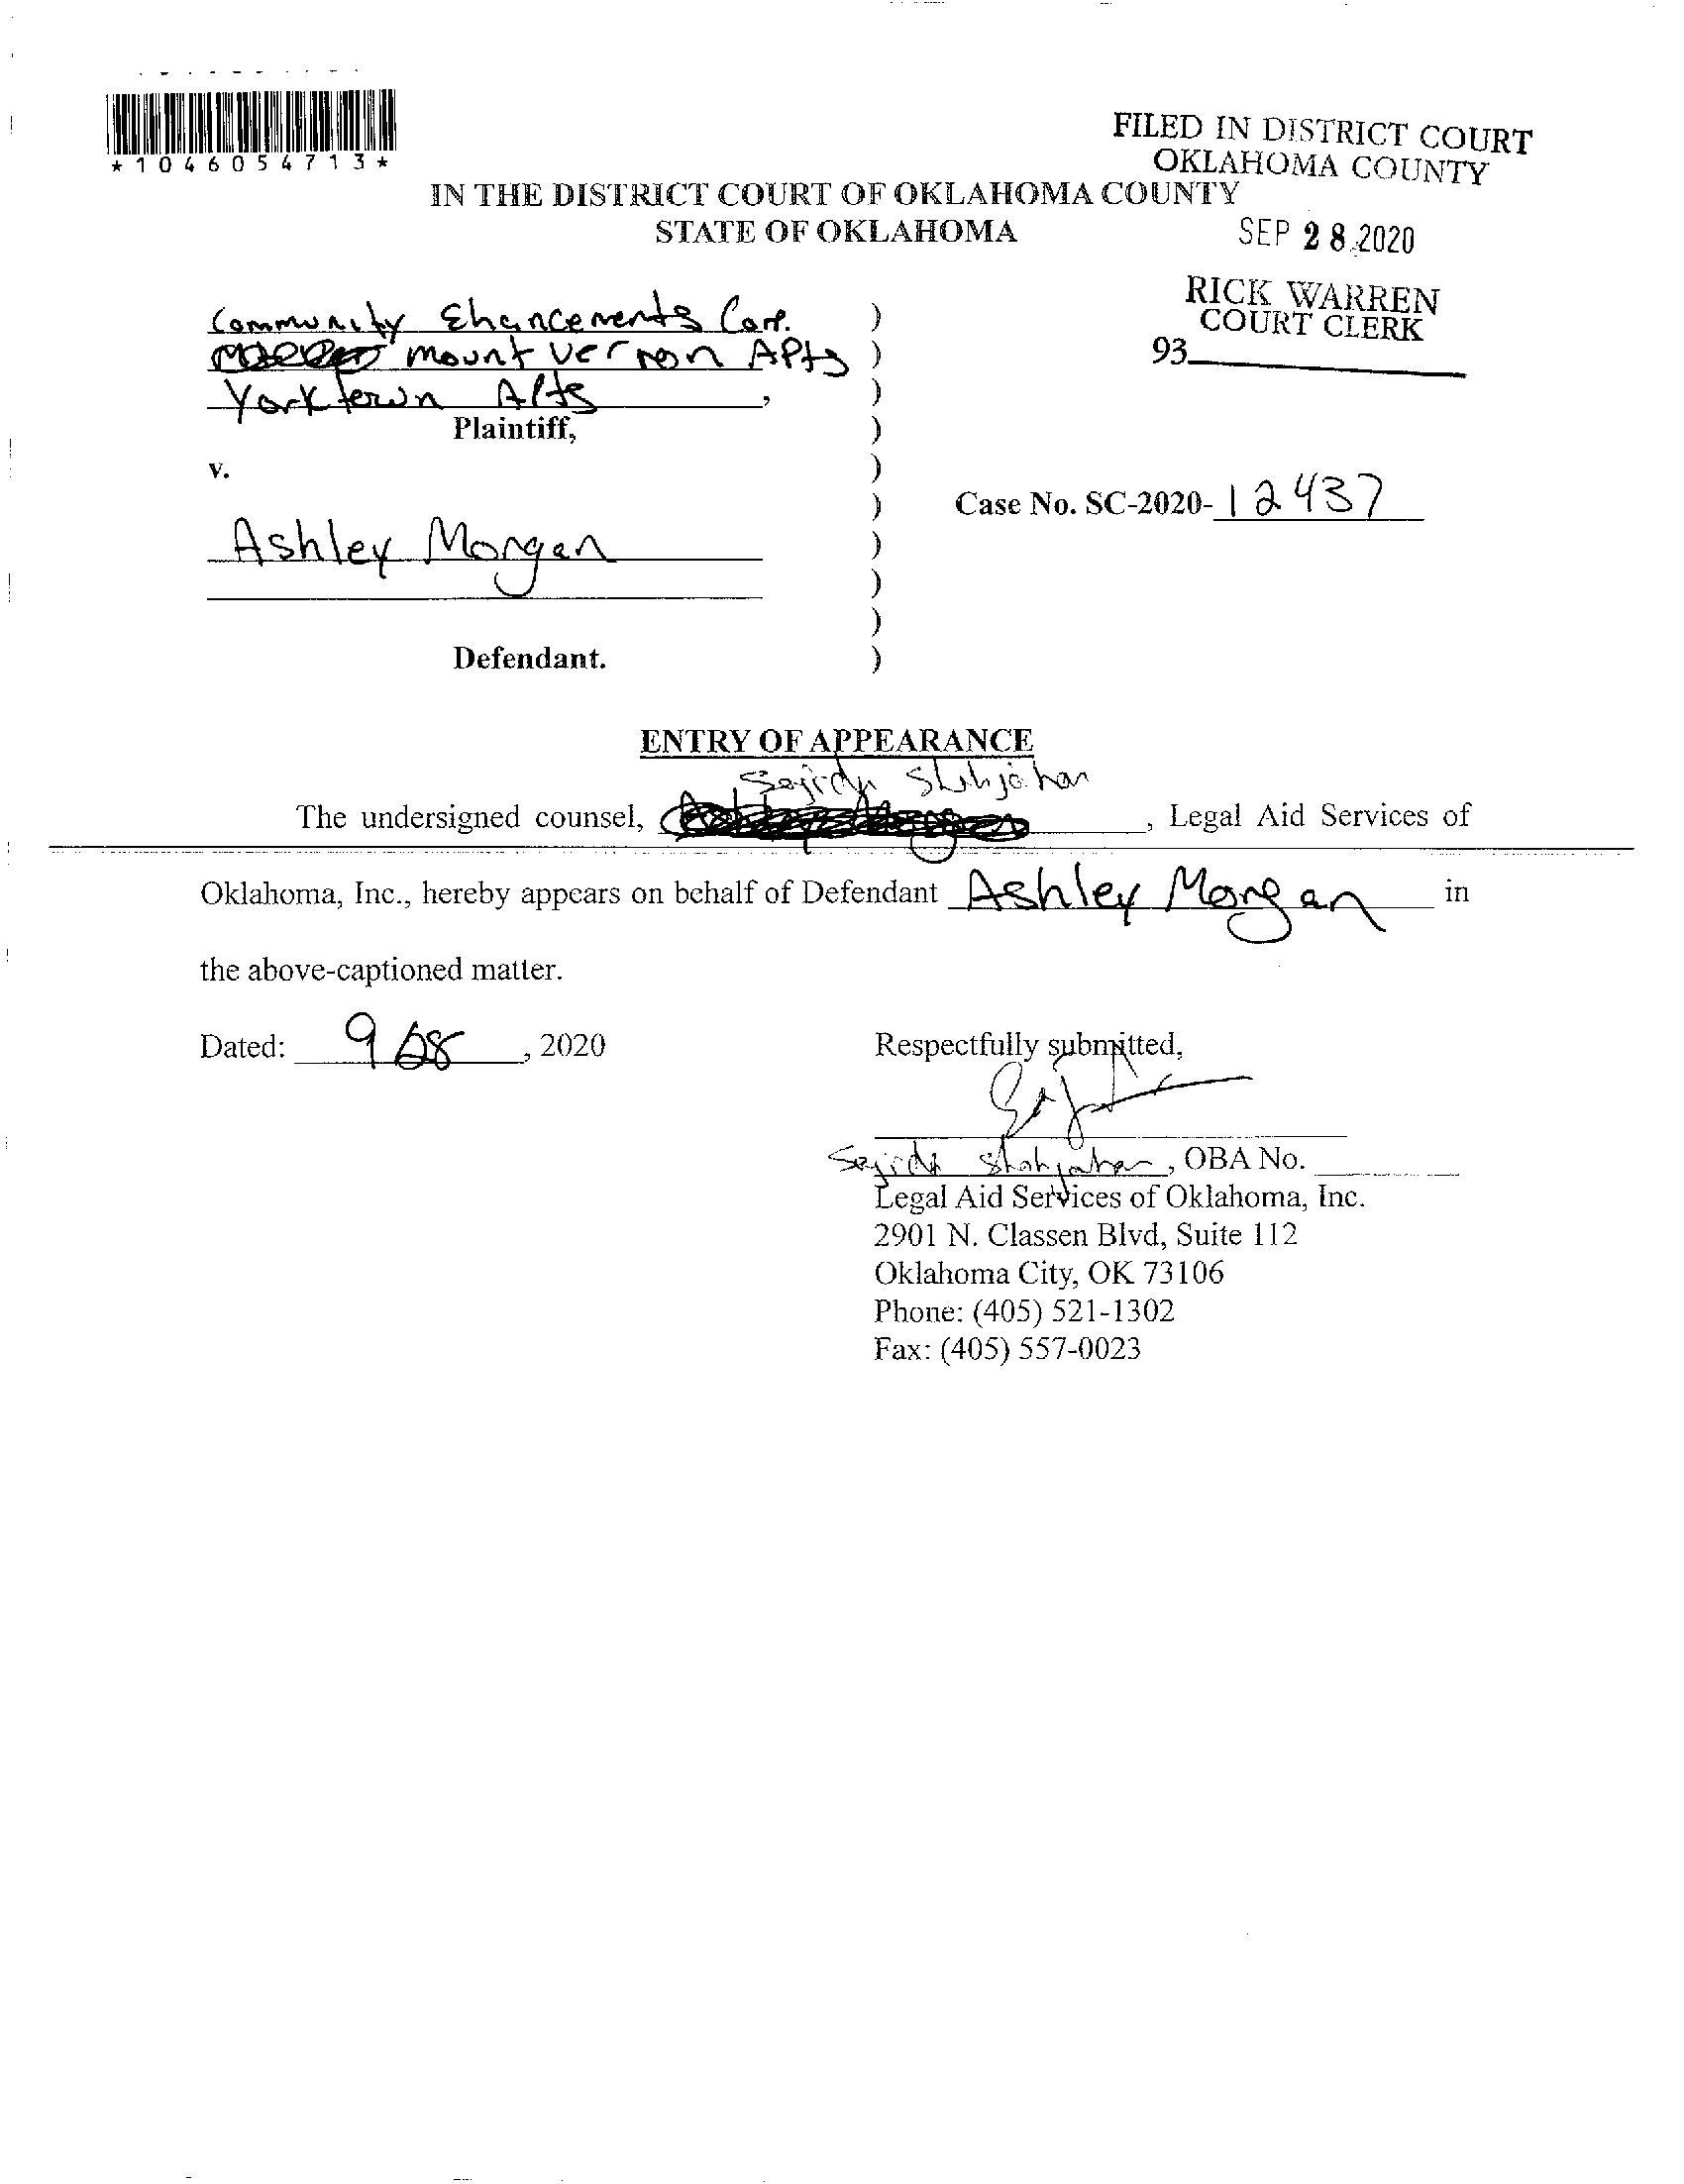 *1046054713*
FILED IN DISTRICT COURT
OKLAHOMA COUNTY
IN THE DISTRICT COURT OF OKLAHOMA COUNTY
STATE OF OKLAHOMA
SEP 28 2020
RICK WARREN
COURT CLERK
93
Community Ehancements Corp. )
mount vernon Apts )
Yorktown Apts , )
Plaintiff, )
v. )
Case No. SC-2020- 12437 )
Ashley Morgan )
)
)
Defendant. )
ENTRY OF APPEARANCE
Sajida Shahjahan
The undersigned counsel, , Legal Aid Services of
Oklahoma, Inc., hereby appears on behalf of Defendant Ashley Morgan in
the above-captioned matter.
Dated: 9 28 , 2020
Respectfully submitted,
Sajida Shahjahan, OBA No.
Legal Aid Services of Oklahoma, Inc.
2901 N. Classen Blvd, Suite 112
Oklahoma City, OK 73106
Phone: (405) 521-1302
Fax: (405) 557-0023